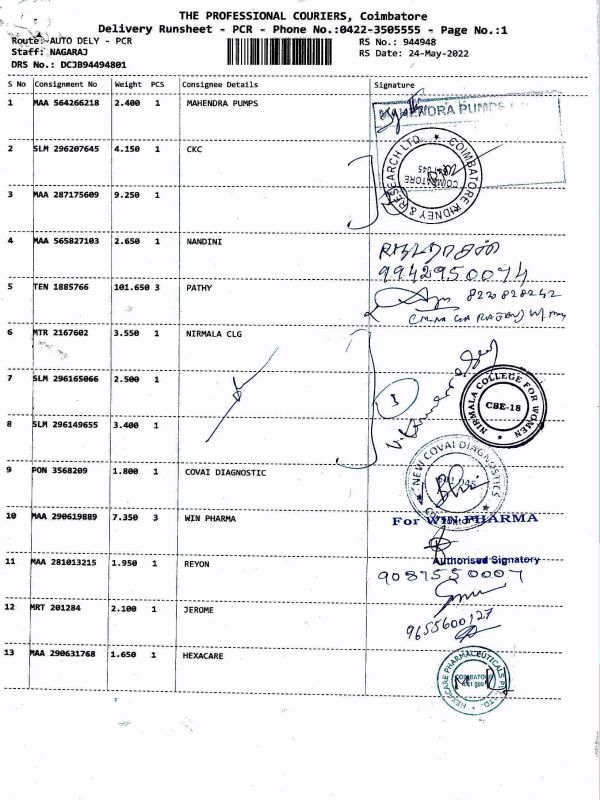 THE PROFESSIONAL COURIERS, Coimbatore
Delivery Runsheet - PCR - Phone No.:0422-3505555 - Page No.:1
Route:-AUTO DELY - PCR
Staff: NAGARAJ
DRS No.: DCJB94494801
RS No.: 944948
RS Date: 24-May-2022
S No Consignment No Weight PCS Consignee Details Signature
1 MAA 564266218 2.400 1 MAHENDRA PUMPS
MAHENDRA PUMPS
2 SLM 296207645 4.150 1 CKC
COIMBATORE KIDNEY & RESEARCH LTD.
COIMBATORE
3 MAA 287175609 9.250 1
4 MAA 565827103 2.650 1 NANDINI
9942950074
5 TEN 1885766 101.650 3 PATHY
8220828242
6 MTR 2167602 3.550 1 NIRMALA CLG
7 SLM 296165066 2.500 1
3
NIRMALA COLLEGE FOR WOMEN
CBE-18
8 SLM 296149655 3.400 1
9 PON 3568209 1.800 1 COVAI DIAGNOSTIC
NEW COVAI DIAGNOSTICS
10 MAA 290619889 7.350 3 WIN PHARMA
For WIN PHARMA
Authorised Signatory
11 MAA 281013215 1.950 1 REYON
9087550007
12 MRT 201284 2.100 1 JEROME
9655600127
13 MAA 290631768 1.650 1 HEXACARE
HEXACARE PHARMACEUTICALS PVT. LTD.
COIMBATORE